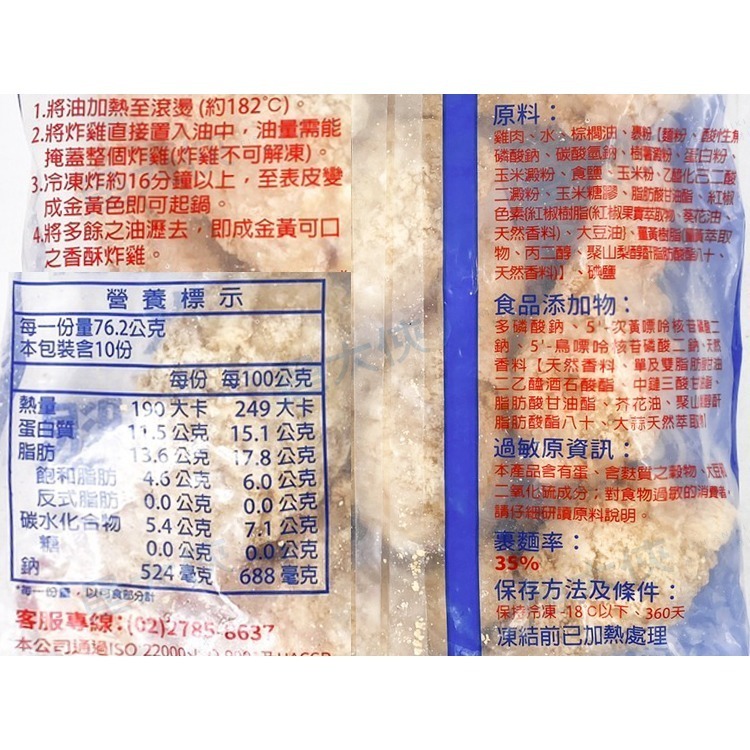 1.將油加熱至滾燙 (約182℃)。
2.將炸雞直接置入油中，油量需能
掩蓋整個炸雞(炸雞不可解凍)。
3.冷凍炸約16分鐘以上，至表皮變
成金黃色即可起鍋。
4.將多餘之油瀝去，即成金黃可口
之香酥炸雞。
營養標示
每一份量76.2公克
本包裝含10份
每份 每100公克
熱量 190 大卡 249 大卡
蛋白質 11.5 公克 15.1 公克
脂肪 13.6 公克 17.8 公克
飽和脂肪 4.6 公克 6.0 公克
反式脂肪 0.0 公克 0.0 公克
碳水化合物 5.4 公克 7.1 公克
糖 0.0 公克 0.0 公克
鈉 524 毫克 688 毫克
*每一份量，以可食部分計
客服專線:(02)2785-8637
本公司通過ISO 22000
原料：
雞肉、水、棕櫚油、裹粉【麵粉、酸性焦
磷酸鈉、碳酸氫鈉、樹薯澱粉、蛋白粉、
玉米澱粉、食鹽、玉米粉、乙醯化己二酸
二澱粉、玉米糖膠、脂肪酸甘油酯、紅椒
色素(紅椒樹脂(紅椒果實萃取物、葵花油、
天然香料)、大豆油)、薑黃樹脂(薑黃萃取
物、丙二醇、聚山梨醇酐脂肪酸酯八十、
天然香料)】、磷鹽
食品添加物：
多磷酸鈉、5'-次黃嘌呤核苷磷酸二
鈉、5'-鳥嘌呤核苷磷酸二鈉、天然
香料【天然香料、單及雙脂肪酸甘油
二乙醯酒石酸酯、中鏈三酸甘油酯、
脂肪酸甘油酯、芥花油、聚山梨醇酐
脂肪酸酯八十、大蒜天然萃取物】
過敏原資訊：
本產品含有蛋、含麩質之穀物、大豆和
二氧化硫成分；對食物過敏的消費者，
請仔細研讀原料說明。
裹麵率：
35%
保存方法及條件：
保持冷凍-18℃以下、360天
凍結前已加熱處理